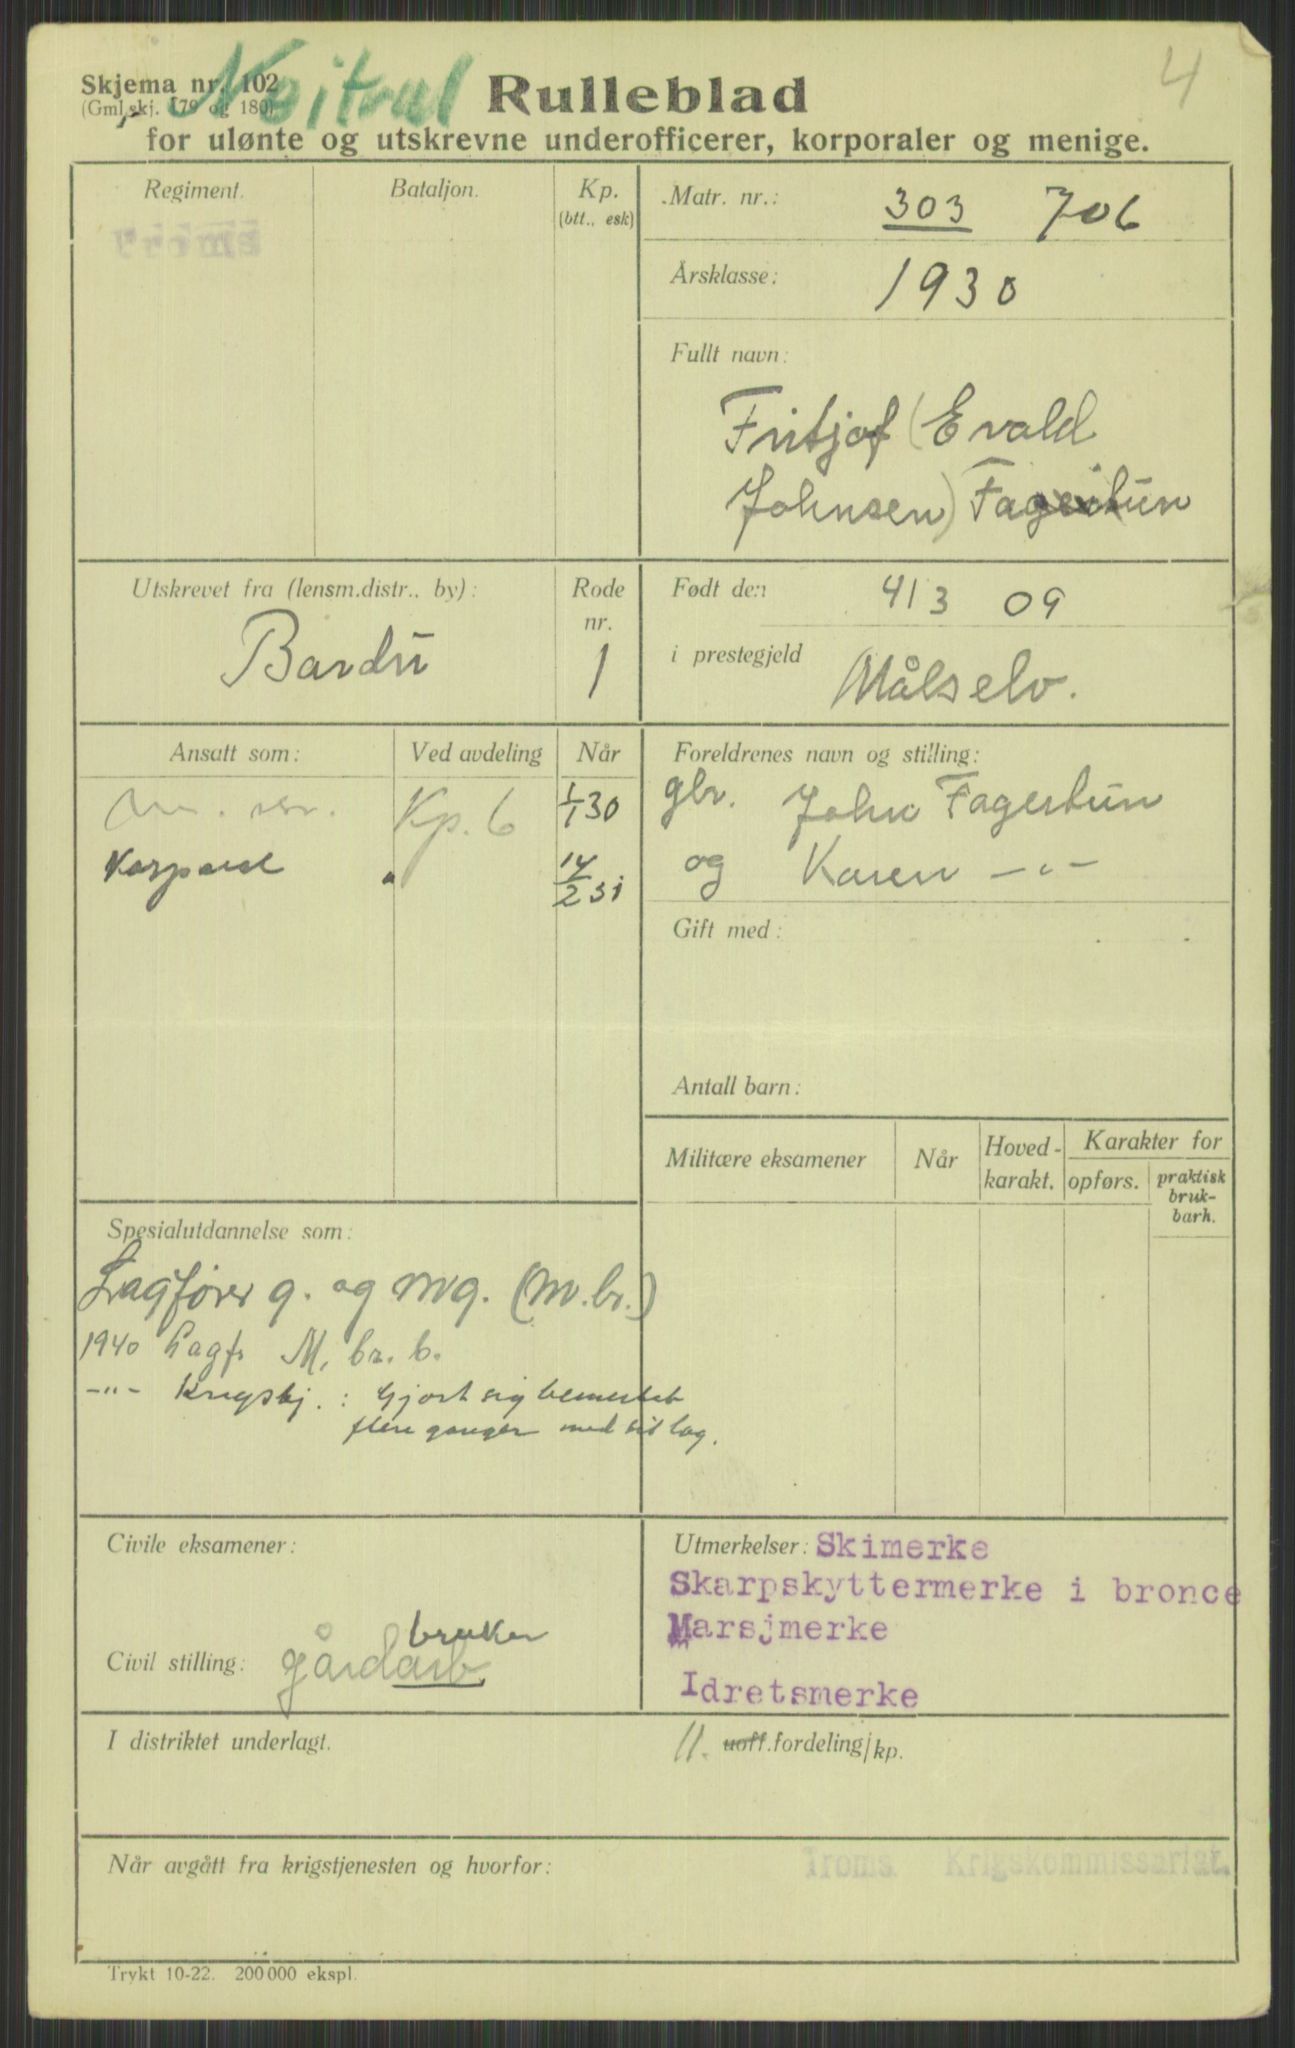 Skjema nr. 102
(Gml. skj. 179 og 180)
Nøitral
4
Rulleblad
for ulønte og utskrevne underofficerer, korporaler og menige.
Regiment.
Bataljon.
Kp.
(btt., esk)
Matr. nr.: 303 706
Årsklasse: 1930
Fullt navn:
Fritjof (Evald
Johnsen) Fagertun
Utskrevet fra (lensm.distr., by):
Bardu
Rode
nr.
1
Født den 4/3 09
i prestegjeld Målselv.
Ansatt som:
Ved avdeling
Når
Kp. 6 1/1 30
Korporal " 14/2 31
Foreldrenes navn og stilling:
gbr. John Fagertun
og Karen -"-
Gift med:
Antall barn:
Militære eksamener
Når
Hoved-
karakt.
Karakter for
opførs.
praktisk
bruk-
barh.
Spesialutdannelse som:
Lagfører g. og mg. (m.br.)
1940 Lagf. M. br. b.
-"- Krigstj. : Gjort sig bemerket
flere ganger med sit lag.
Civile eksamener:
bruker
Civil stilling: gårdarb.
Utmerkelser: Skimerke
Skarpskyttermerke i bronce
Marsjmerke
Idretsmerke
I distriktet underlagt.
11. uoff. fordeling/kp.
Når avgått fra krigstjenesten og hvorfor:
Troms Krigskommissariat.
Trykt 10-22. 200 000 ekspl.